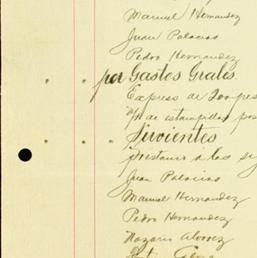 Manuel Hernandez
Juan Palacios
Pedro Hernandez
por Gastos Grales
Express de
de estampillas pos
Sirvientes
prestamo a los sig
Juan Palacios
Manuel Hernandez
Pedro Hernandez
Nazario Alvarez